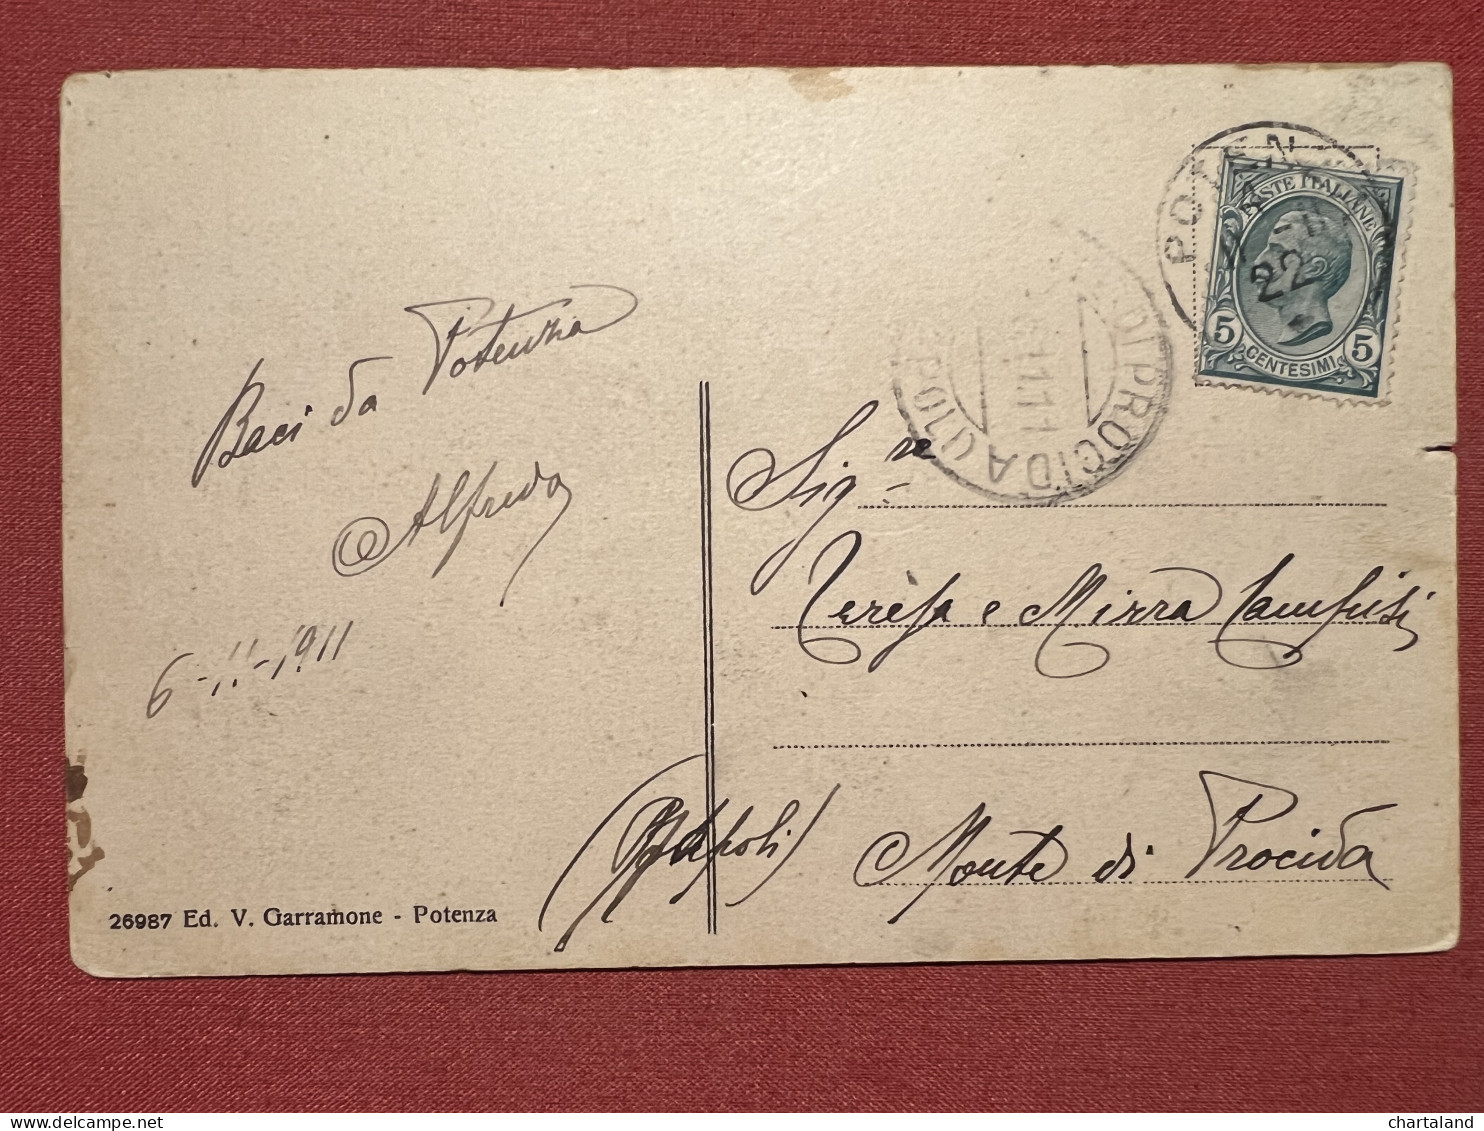 Baci da Potenza
Alfredo
6-11-1911
26987 Ed. V. Garramone - Potenza
POTENZA
22
POSTE ITALIANE
5 CENTESIMI 5
DI PROCIDA
11.11
Sig.re
Teresa e Mirra
Monte di Procida
(Napoli)
chartaland
www.delcampe.net